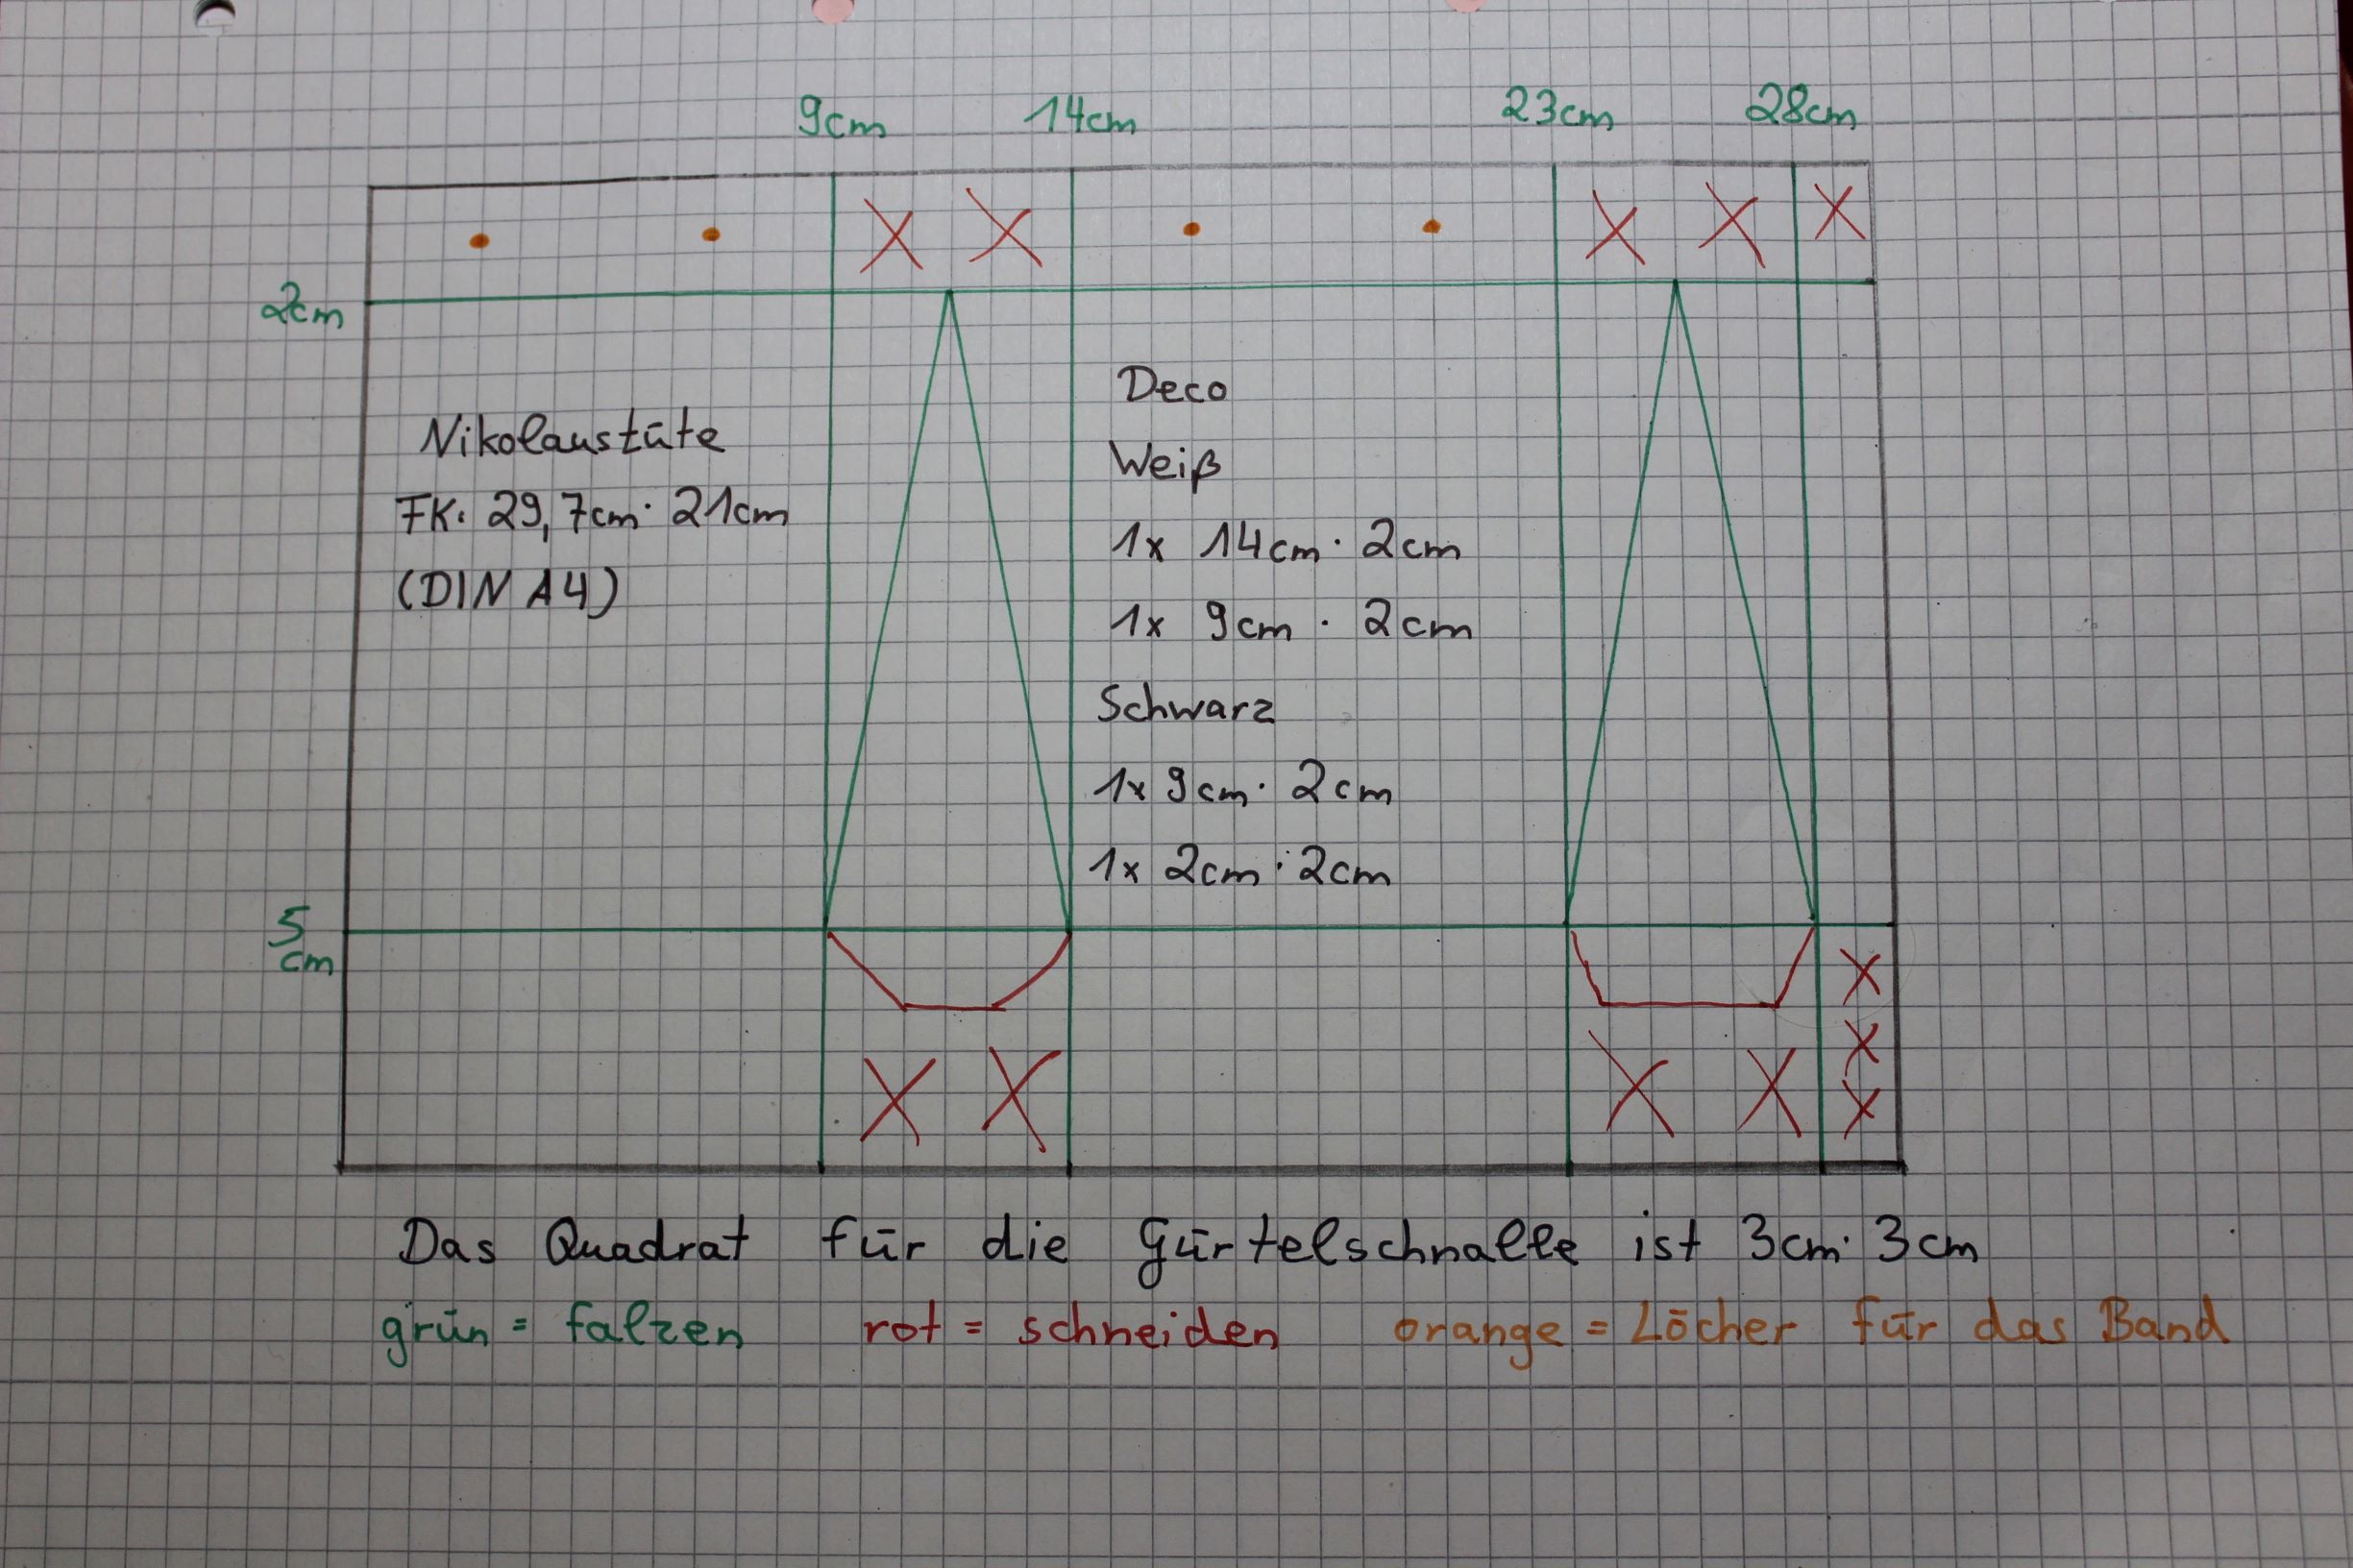 9cm 14cm 23cm 28cm
2cm
Nikolaustüte
FK: 29,7cm · 21cm
(DIN A4)
Deco
Weiß
1x 14cm · 2cm
1x 9cm · 2cm
Schwarz
1x 9cm · 2cm
1x 2cm · 2cm
5
cm
Das Quadrat für die Gürtelschnalle ist 3cm · 3cm
grün = falzen rot = schneiden orange = Löcher für das Band